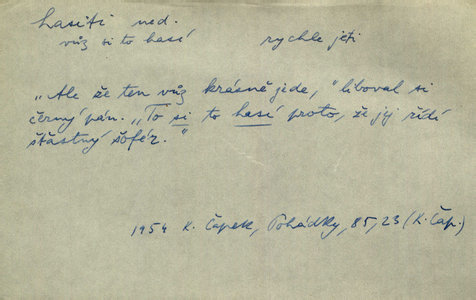 hasiti ned.
vůz si to hasí rychle jeti
„Ale že ten vůz krásně jede,“ liboval si
černý pán. „To si to hasí proto, že jej řídí
šťastný šofér.“
1954 K. Čapek, Pohádky, 85,23 (K. Čap.)